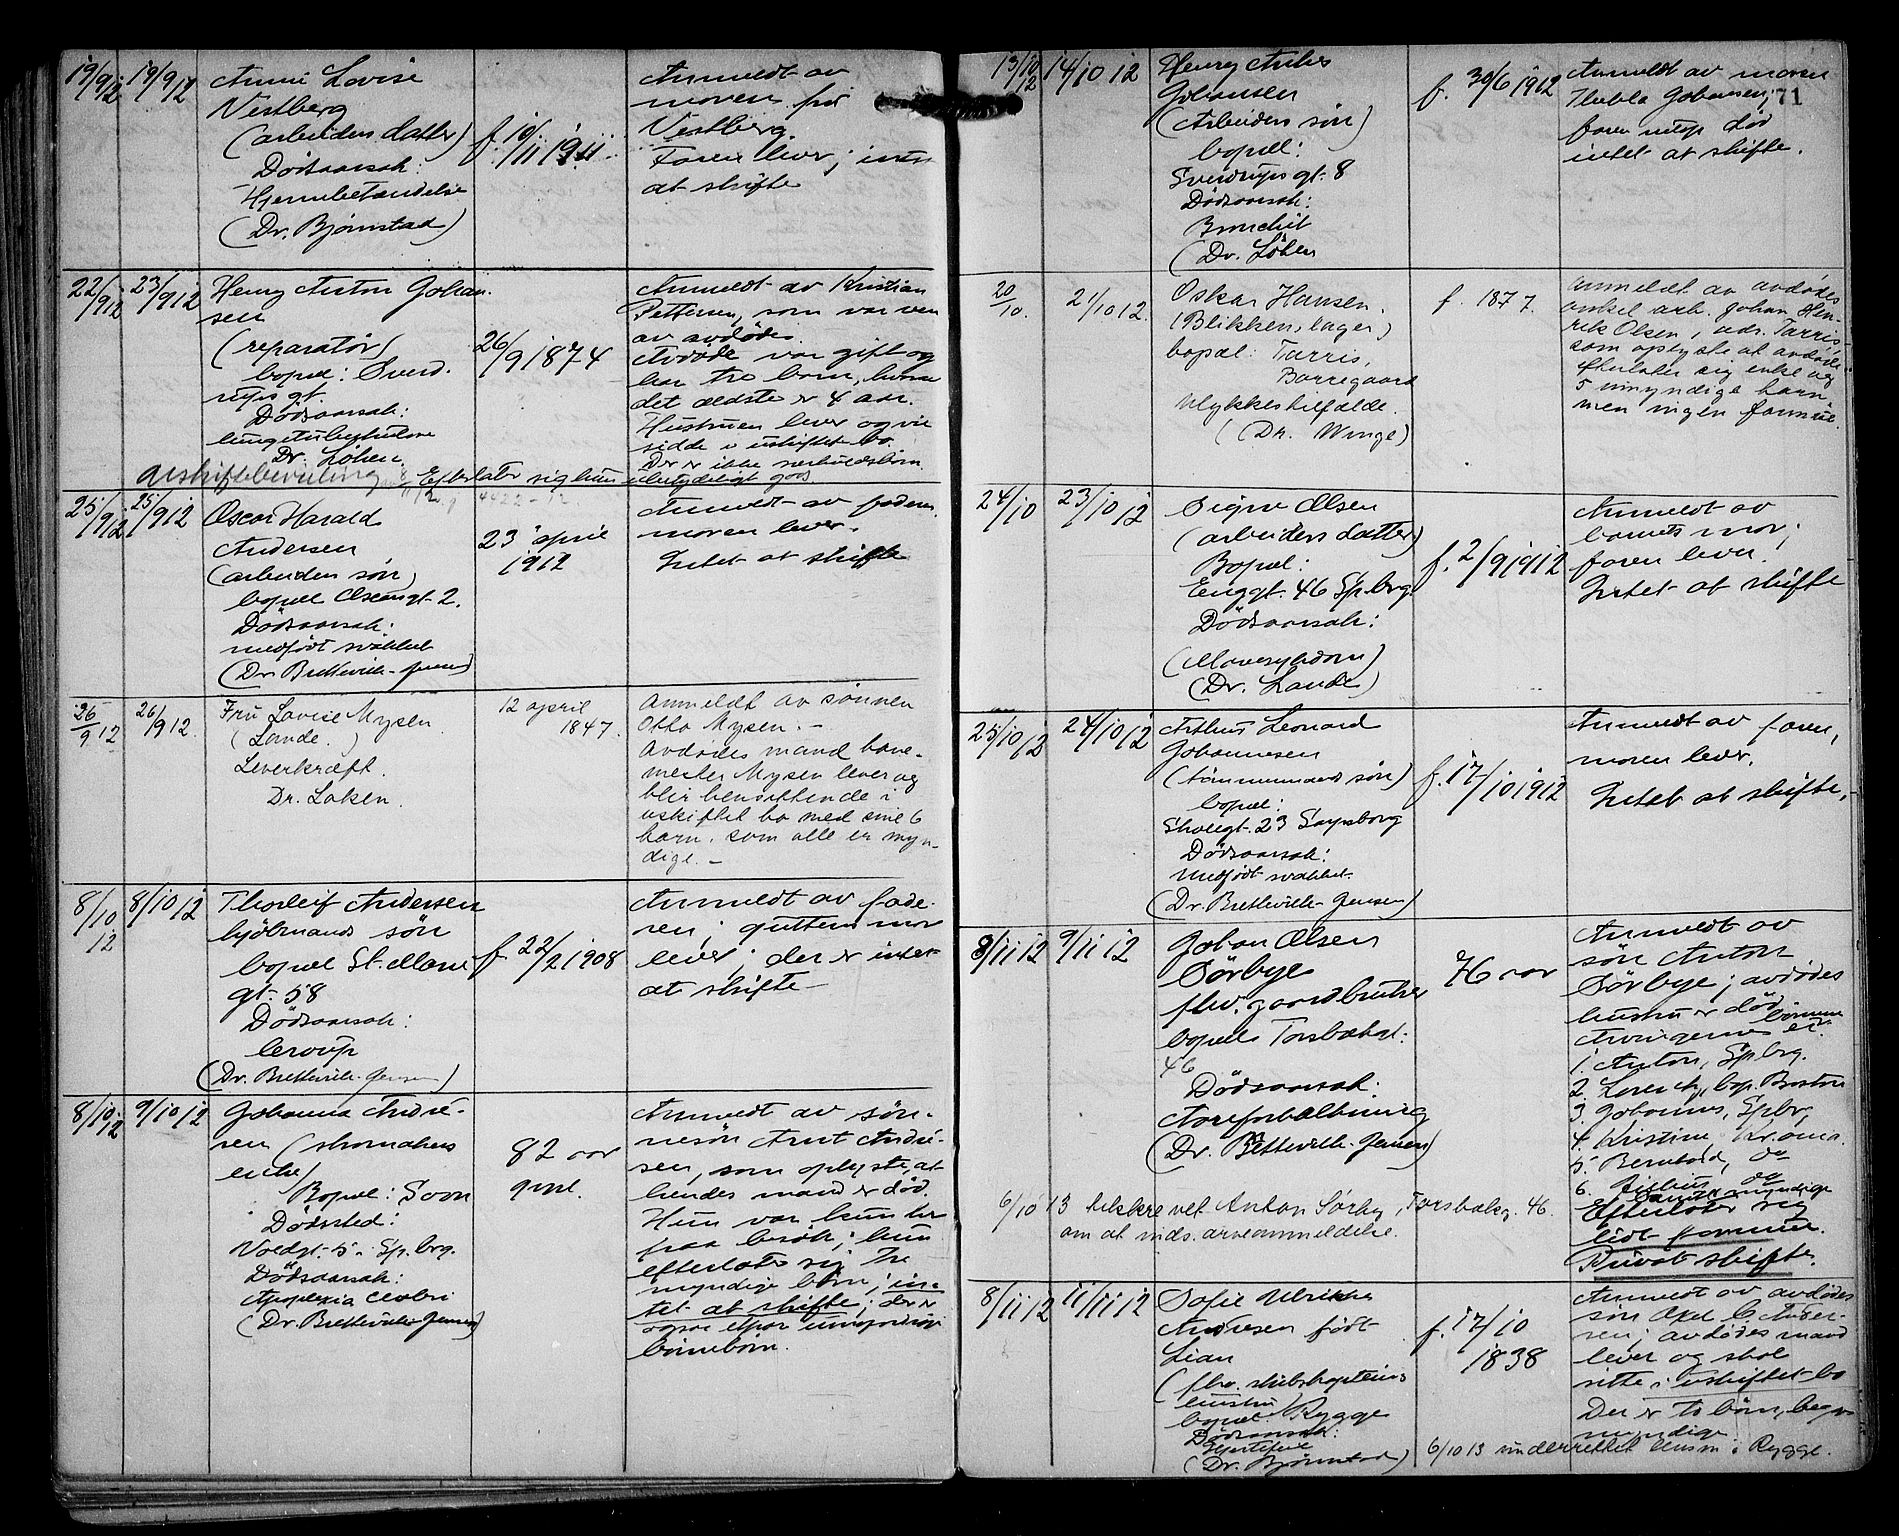 19/9 12
19/9 12
Anne Lovise
Vestberg
(arbeiders datter)
Dödsaarsak:
Hjernebetændelse
(Dr. Bjørnstad)
f. 10/11 1911
Anmeldt av
moren fru
Vestberg.
Faren lever; intet
at skifte
22/9 12
23/9 12
Henry Anton Johan-
sen
(reparatør)
bopæl: Sverd-
rups gt.
Dödsaarsak:
lungetuberkulose
Dr. Löken.
26/9 1874
Anmeldt av Kristian
Pettersen, som var ven
av avdøde.
Avdøde var gift og
har tre barn, hvorav
det ældste er 4 aar.
Hustruen lever og vil
sidde i uskiftet bo.
Der er ikke særkuldsbörn
Efterlater sig kun ubetydeligt gods.
25/9 12
25/9 12
Oscar Harald
Andersen
(arbeiders sön)
bopæl Oscarsgt. 2.
Dödsaarsak:
medfödt svakhet
(Dr. Bretteville-Jensen)
23 april
1912
Anmeldt av faderen,
moren lever.
Intet at skifte
26/9 12
26/9 12.
Fru Lovise Mysen
(Lande.)
Leverkræft.
Dr. Løken.
12 april
1847.
Anmeldt av sønnen
Otto Mysen. -
Avdødes mand bane-
mester Mysen lever og
blir bensittende i
uskiftet bo med sine 6
barn, som alle er myn-
dige. -
8/10 12
8/10 12
Thorleif Andersen
hjölmands sön
bopæl St. Marie
gt. 58
Dödsaarsak:
croup
(Dr. Bretteville-Jensen)
f. 22/2 1908
Anmeldt av fade-
ren; guttens mor
lever; der er intet
at skifte -
8/10 12
9/10 12
Johanna André-
sen (skomakers
enke)
Bopæl: Soon
Dödssted:
Voldgt. 5. Sp.brg.
Dödsaarsak:
Apoplexia cerebri
(Dr. Bretteville-Jensen)
82 aar
gml.
Anmeldt av sön-
nesön Arnt André-
sen, som oplyste, at
hendes mand er död.
Hun var kun her
paa besök; hun
efterlater sig tre
myndige börn; in-
tet at skifte; der er
ogsaa etpar umyndige
börnebörn.
71
13/10 12
14/10 12
Henry Anker
Johansen
(Arbeiders sön)
bopæl:
Sverdrups gt. 8
Dödsaarsak:
Bronchit
(Dr. Löken
f. 30/6 1912
Anmeldt av moren
Thekla Johansen;
faren död
intet at skifte.
20/10.
21/10 12.
Oskar Hansen.
(Blikken, lager)
bopæl: Tarris,
Borregaard
Ulykkestilfælde.
(Dr. Winge)
f. 1877.
Anmeldt av avdødes
onkel arb. Johan Hen-
rik Olsen, adr. Tarris-
som oplyste at avdøde
efterlater sig enke og
5 umyndige barn,
men ingen formue.
24/10
23/10 12
Signe Olsen
(arbeiders datter)
Bopæl:
Enggt. 46 Sp.brg.
Dödsaarsak:
(Mavesykdom)
(Dr. Lande)
f. 2/9 1912
Anmeldt av
barnets mor;
faren lever!
Intet at skifte
25/10 12
24/10 12
Arthur Leonard
Johannesen
(tömmermands sön)
bopæl:
Skovgt. 23 Sarpsborg
Dödsaarsak:
medfödt svakhet.
(Dr. Bretteville-Jensen)
f. 17/10 1912
Anmeldt av faren,
moren lever.
Intet at skifte. -
8/11 12
9/11 12
Johan Olsen
Sörbye
fhv. gaardbruker
bopæl Torsbækgt.
46
Dödsaarsak:
Aareforkalkning
(Dr. Bretteville-Jensen)
76 aar
Anmeldt av
sön Anton
Sörbye; avdødes
hustru er död
Arvingerne er börnene
1. Anton, Spbrg.
2. bop. Boston
3. Johannes, Spbrg.
4. Kristine, Kr.ania.
5. Bernhard, do
6. do
myndige
Efterlater sig
lidt formue.
Privat skifte.
6/10 13 tilskrevet Anton Sörby, Torsbækg. 46.
om at inds. arveanmeldelse.
8/11 12
11/11 12
Sofie Ulrikke
Andresen födt
Lian
(fhv. skibskapteins
hustru
bopæl: Rygge
Dödsaarsak:
Hjertefeil
(Dr. Bjørnstad)
f. 17/10
1838
Anmeldt av avdødes
sön Axel C. Andre-
sen; avdødes mand
lever og skal
sitte i uskiftet bo
Der er to börn, begge
myndige
6/10 13 underrettet lensm. i Rygge.